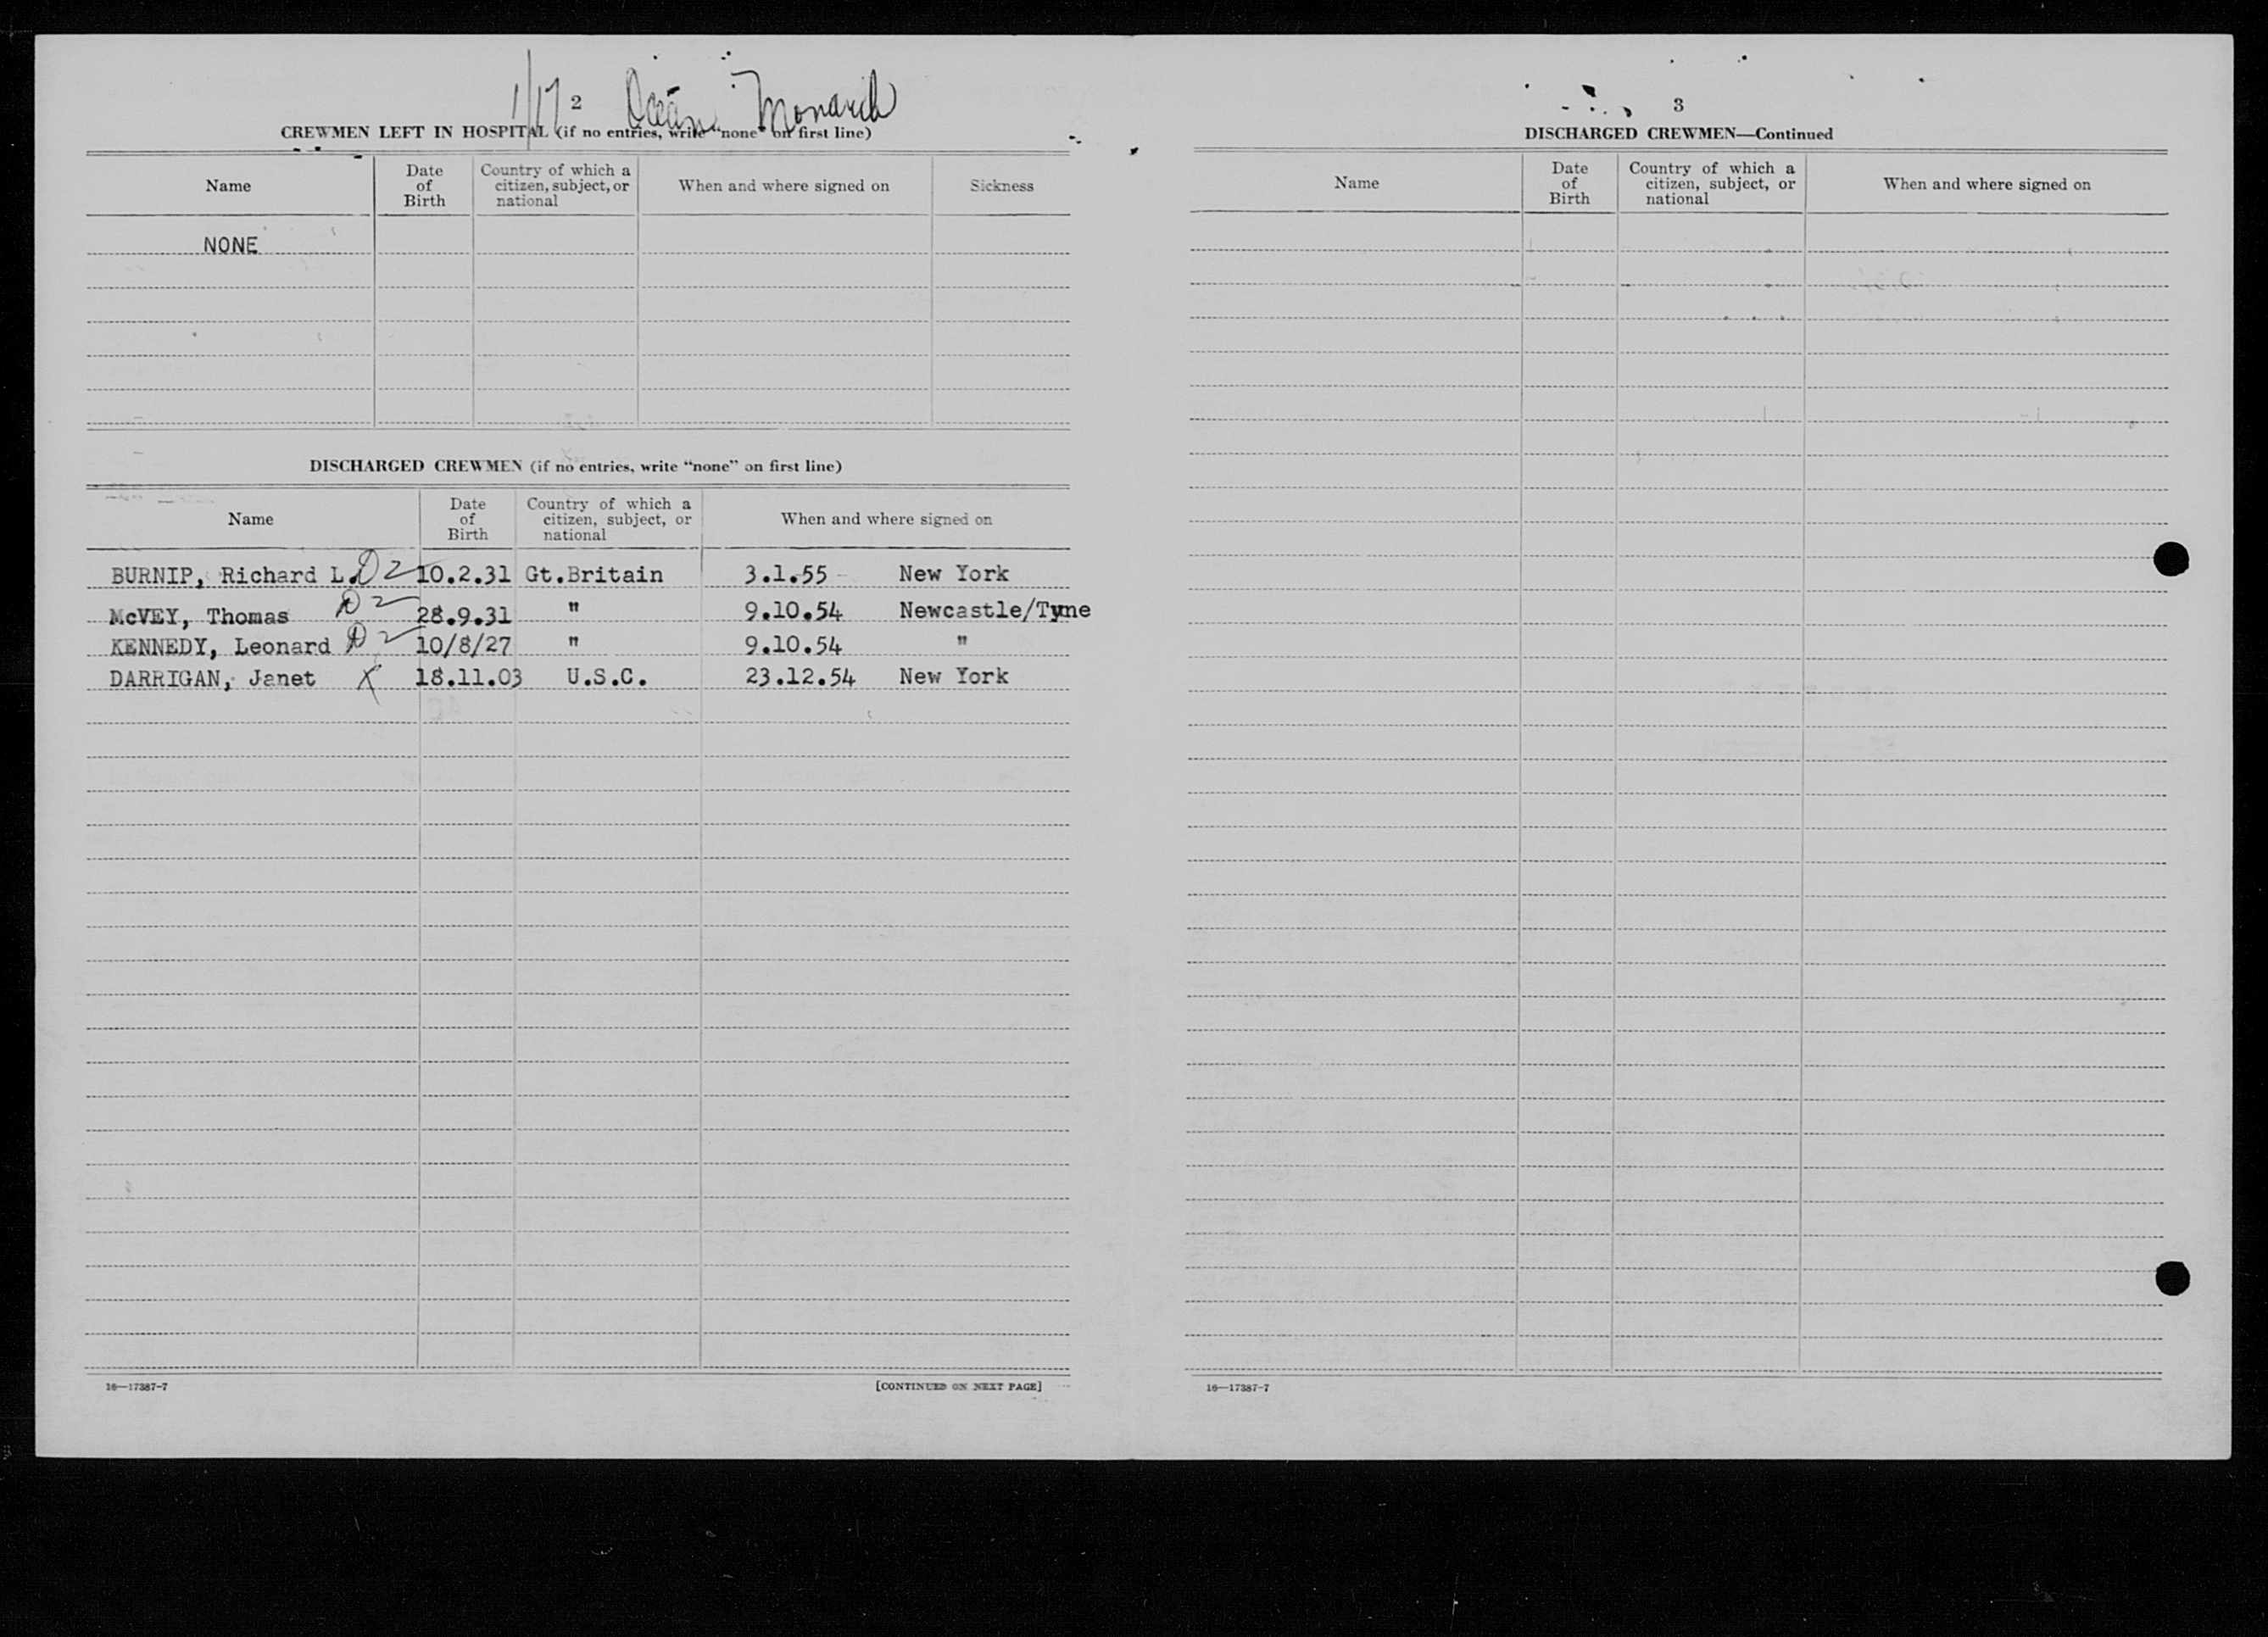 1/17 2 Ocean Monarch
CREWMEN LEFT IN HOSPITAL (if no entries, write "none" on first line)
Name
Date of Birth
Country of which a citizen, subject, or national
When and where signed on
Sickness
NONE
DISCHARGED CREWMEN (if no entries, write “none” on first line)
Name
Date of Birth
Country of which a citizen, subject, or national
When and where signed on
BURNIP, Richard L. D2 10.2.31 Gt.Britain 3.1.55 New York
McVEY, Thomas D2 28.9.31 " 9.10.54 Newcastle/Tyne
KENNEDY, Leonard D2 10/8/27 " 9.10.54 "
DARRIGAN, Janet X 18.11.03 U.S.C. 23.12.54 New York
16—17387-7 [CONTINUED ON NEXT PAGE]
3
DISCHARGED CREWMEN—Continued
Name
Date of Birth
Country of which a citizen, subject, or national
When and where signed on
16—17387-7